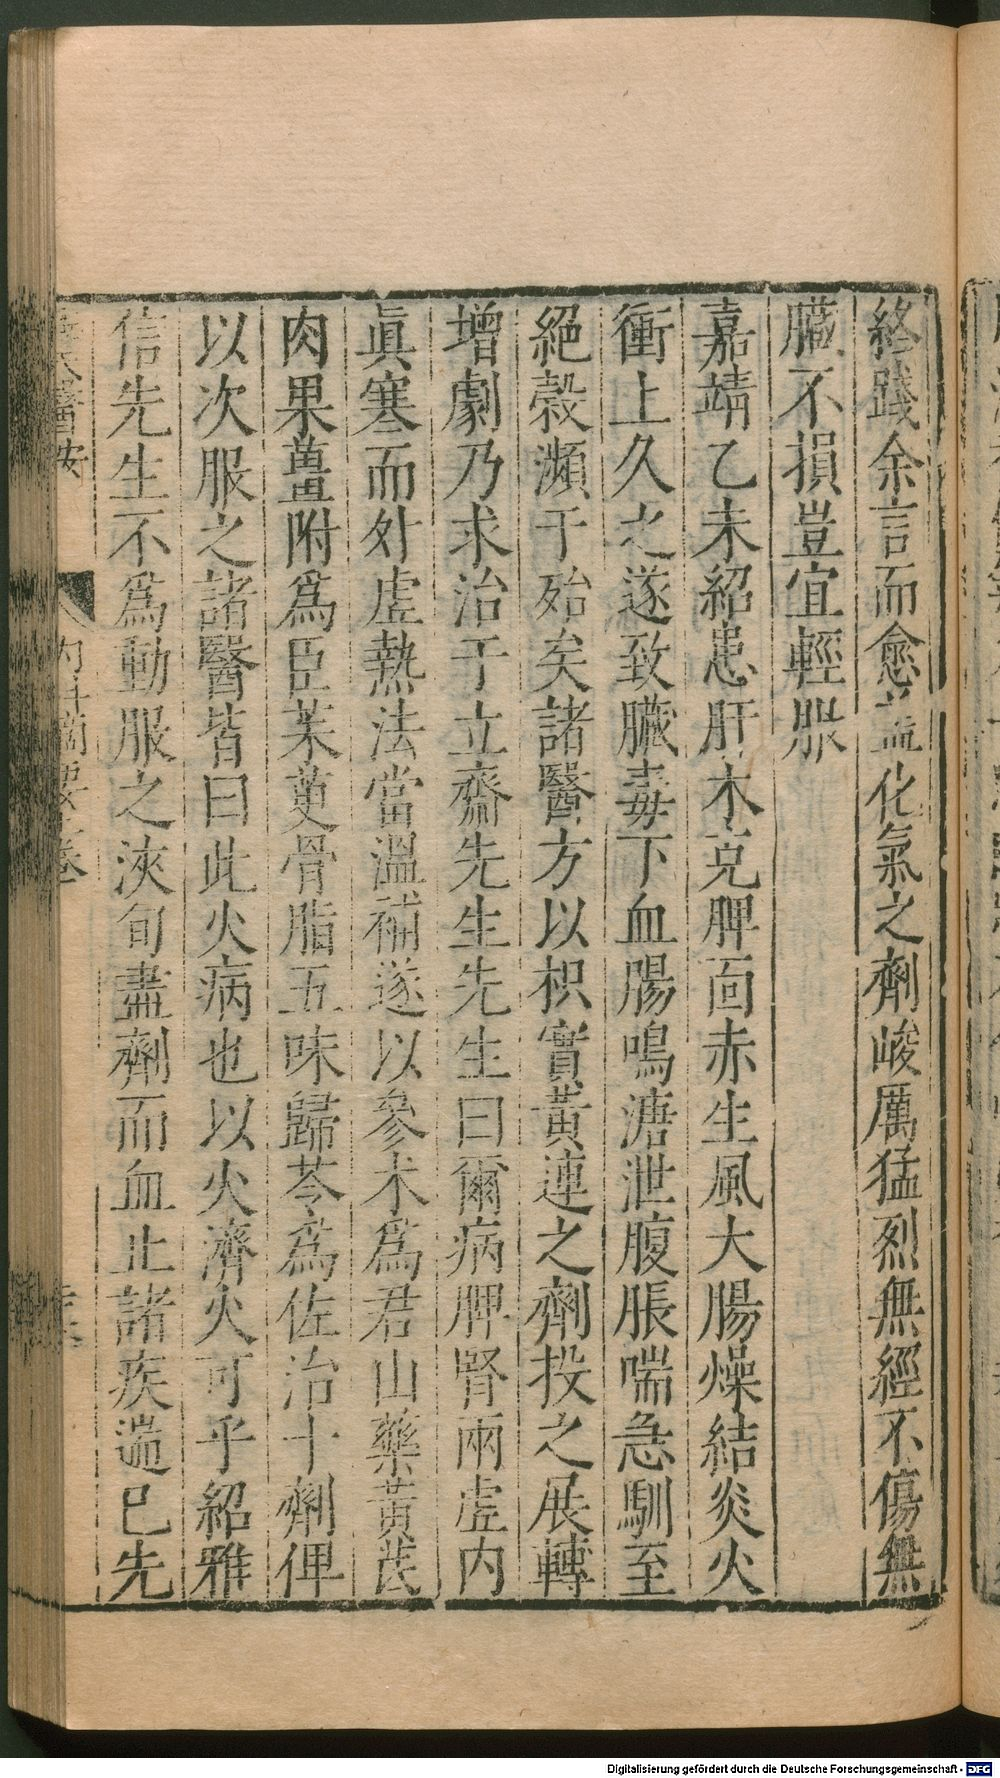 終踐余言而愈蓋化氣之劑峻厲猛烈無經不傷無
臟不損豈宜輕服
嘉靖乙未紹患肝木克脾面赤生風大腸燥結炎火
衝上久之遂致臟毒下血腸鳴溏泄腹脹喘急馴至
絕穀瀕于殆矣諸醫方以枳實黃連之劑投之展轉
增劇乃求治于立齋先生先生曰爾病脾腎兩虛內
眞寒而外虛熱法當溫補遂以參朮爲君山藥黃芪
肉果薑附爲臣茱萸骨脂五味歸苓爲佐治十劑俾
以次服之諸醫皆曰此火病也以火濟火可乎紹雅
信先生不爲動服之浹旬盡劑而血止諸疾遄已先
醫案
內科摘要 卷
Digitalisierung gefördert durch die Deutsche Forschungsgemeinschaft - DFG